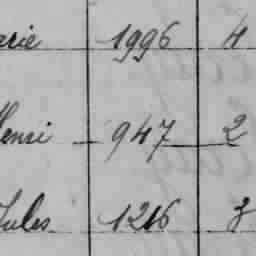 arie 1996 4
Henri - 947 - 2
Jules 1216 3